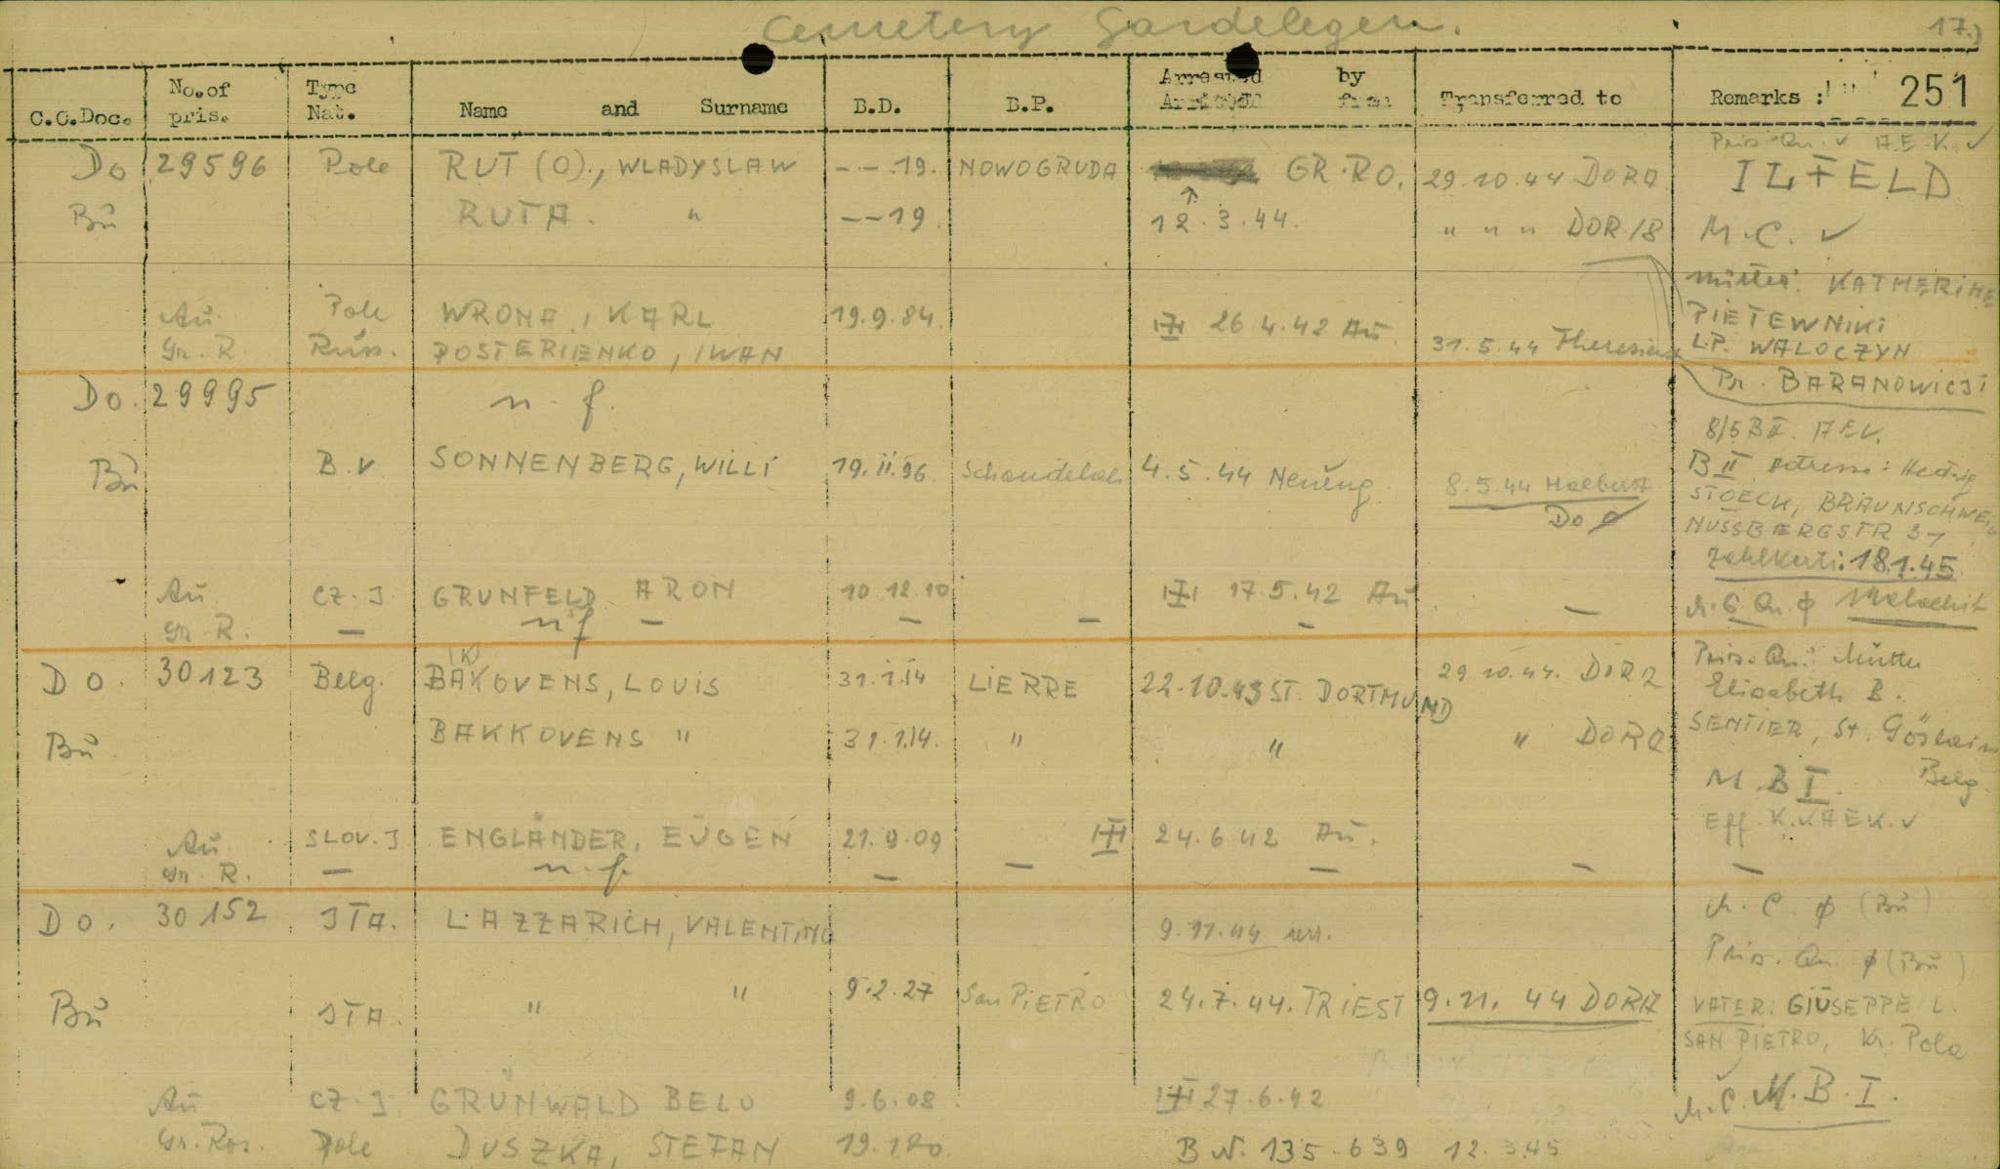 Cemetery Gardelegen. 17.)
C.C.Doc. No.of pris. Type Nat. Name and Surname B.D. B.P. Arrested by Arrived from Transferred to Remarks : 251
Pris. Qu. v A.E.K. ✓
Do 29596 Pole RUT (O)., WLADYSLAW - - .19. NOWOGRUDA GR.RO. 29.10.44 DORA ILFELD
Bu RUTA. " --19. 12.3.44. " " " DOR/8 M.C. ✓
Mutter: KATHERINE
Au. Pole WRONA, KARL 19.9.84. 26.4.42 Au. PIETEWNIKI
Gr. R. Russ. POSTERIENKO, IWAN 31.5.44 L.P. WALOCZYN
Do. 29995 n. f. Pr. BARANOWICSI
8/5 B II. A.E.V.
Bu B.V SONNENBERG, WILLI 19.11.96. 4.5.44 Neueng. 8.5.44 B II Adresse: Hedwig
Do ø STOECK, BRAUNSCHWEIG
NUSSBERGSTR 31
Zahlkarte: 18.1.45
Au CZ. J GRUNFELD ARON 10.12.10 17.5.42 Au. — M.C Qu ø Malachit
Gr. R. — n f — — — —
Do. 30123 Belg. BAKOVENS, LOUIS (K) 31.1.14 LIERRE 22.10.43 ST. DORTMUND 29.10.44. DORA Pris. Qu: Mutter
Elisabeth B.
Bu. BAKKOVENS " 31.1.14. " " " DORA SENTIER, St.
M. B I. Belg.
Au. SLOV. J ENGLÄNDER, EUGEN 21.9.09 24.6.42 Au. Eff. K. v AEK. v
Gr. R. — n. f. — — — — —
Do. 30152 JTA. LAZZARICH, VALENTINO 9.11.44 M. C. ø (Bu)
Pris. Qu. ø (Bu)
Bu JTA. " " 9.2.27 San PIETRO 24.7.44. TRIEST 9.11.44 DORA VATER: GIUSEPPE L.
SAN PIETRO, Kr. Pola
Au CZ. J GRÜNWALD BELO 9.6.08. 27.6.42 M.C. M.B.I.
Gr. Ros. Pole DUSZKA, STEFAN 19.1.20. B.N. 135.639 12.3.45